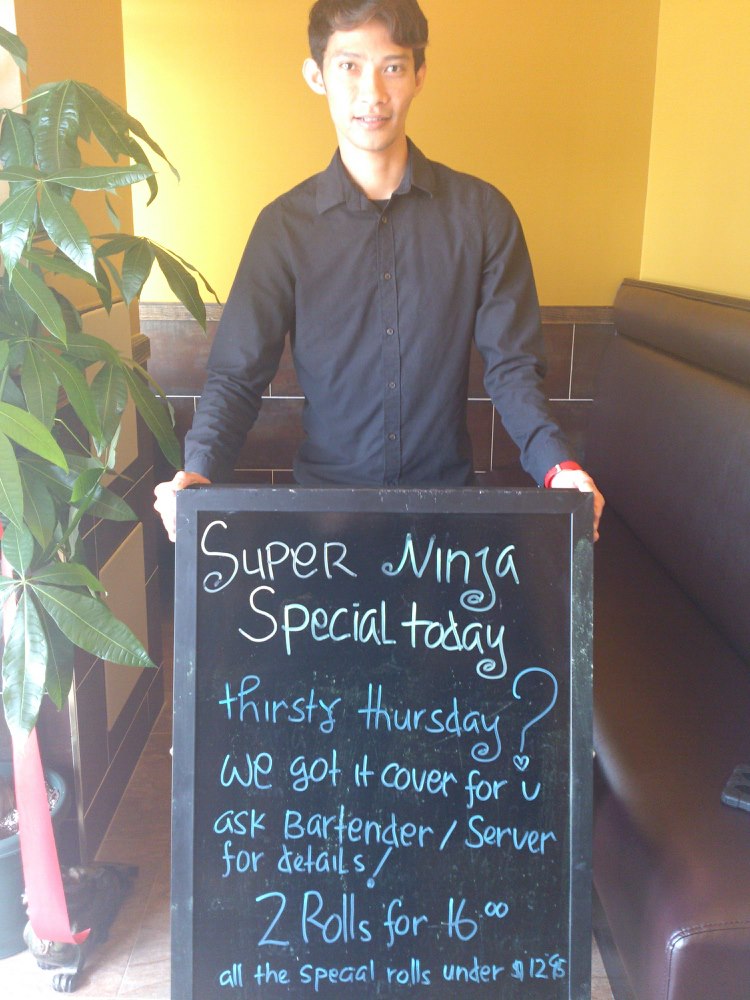 Super Ninja
Special today
thirsty thursday?
we got it cover for u
ask Bartender / Server
for details!
2 Rolls for 16 00
all the special rolls under $12 95